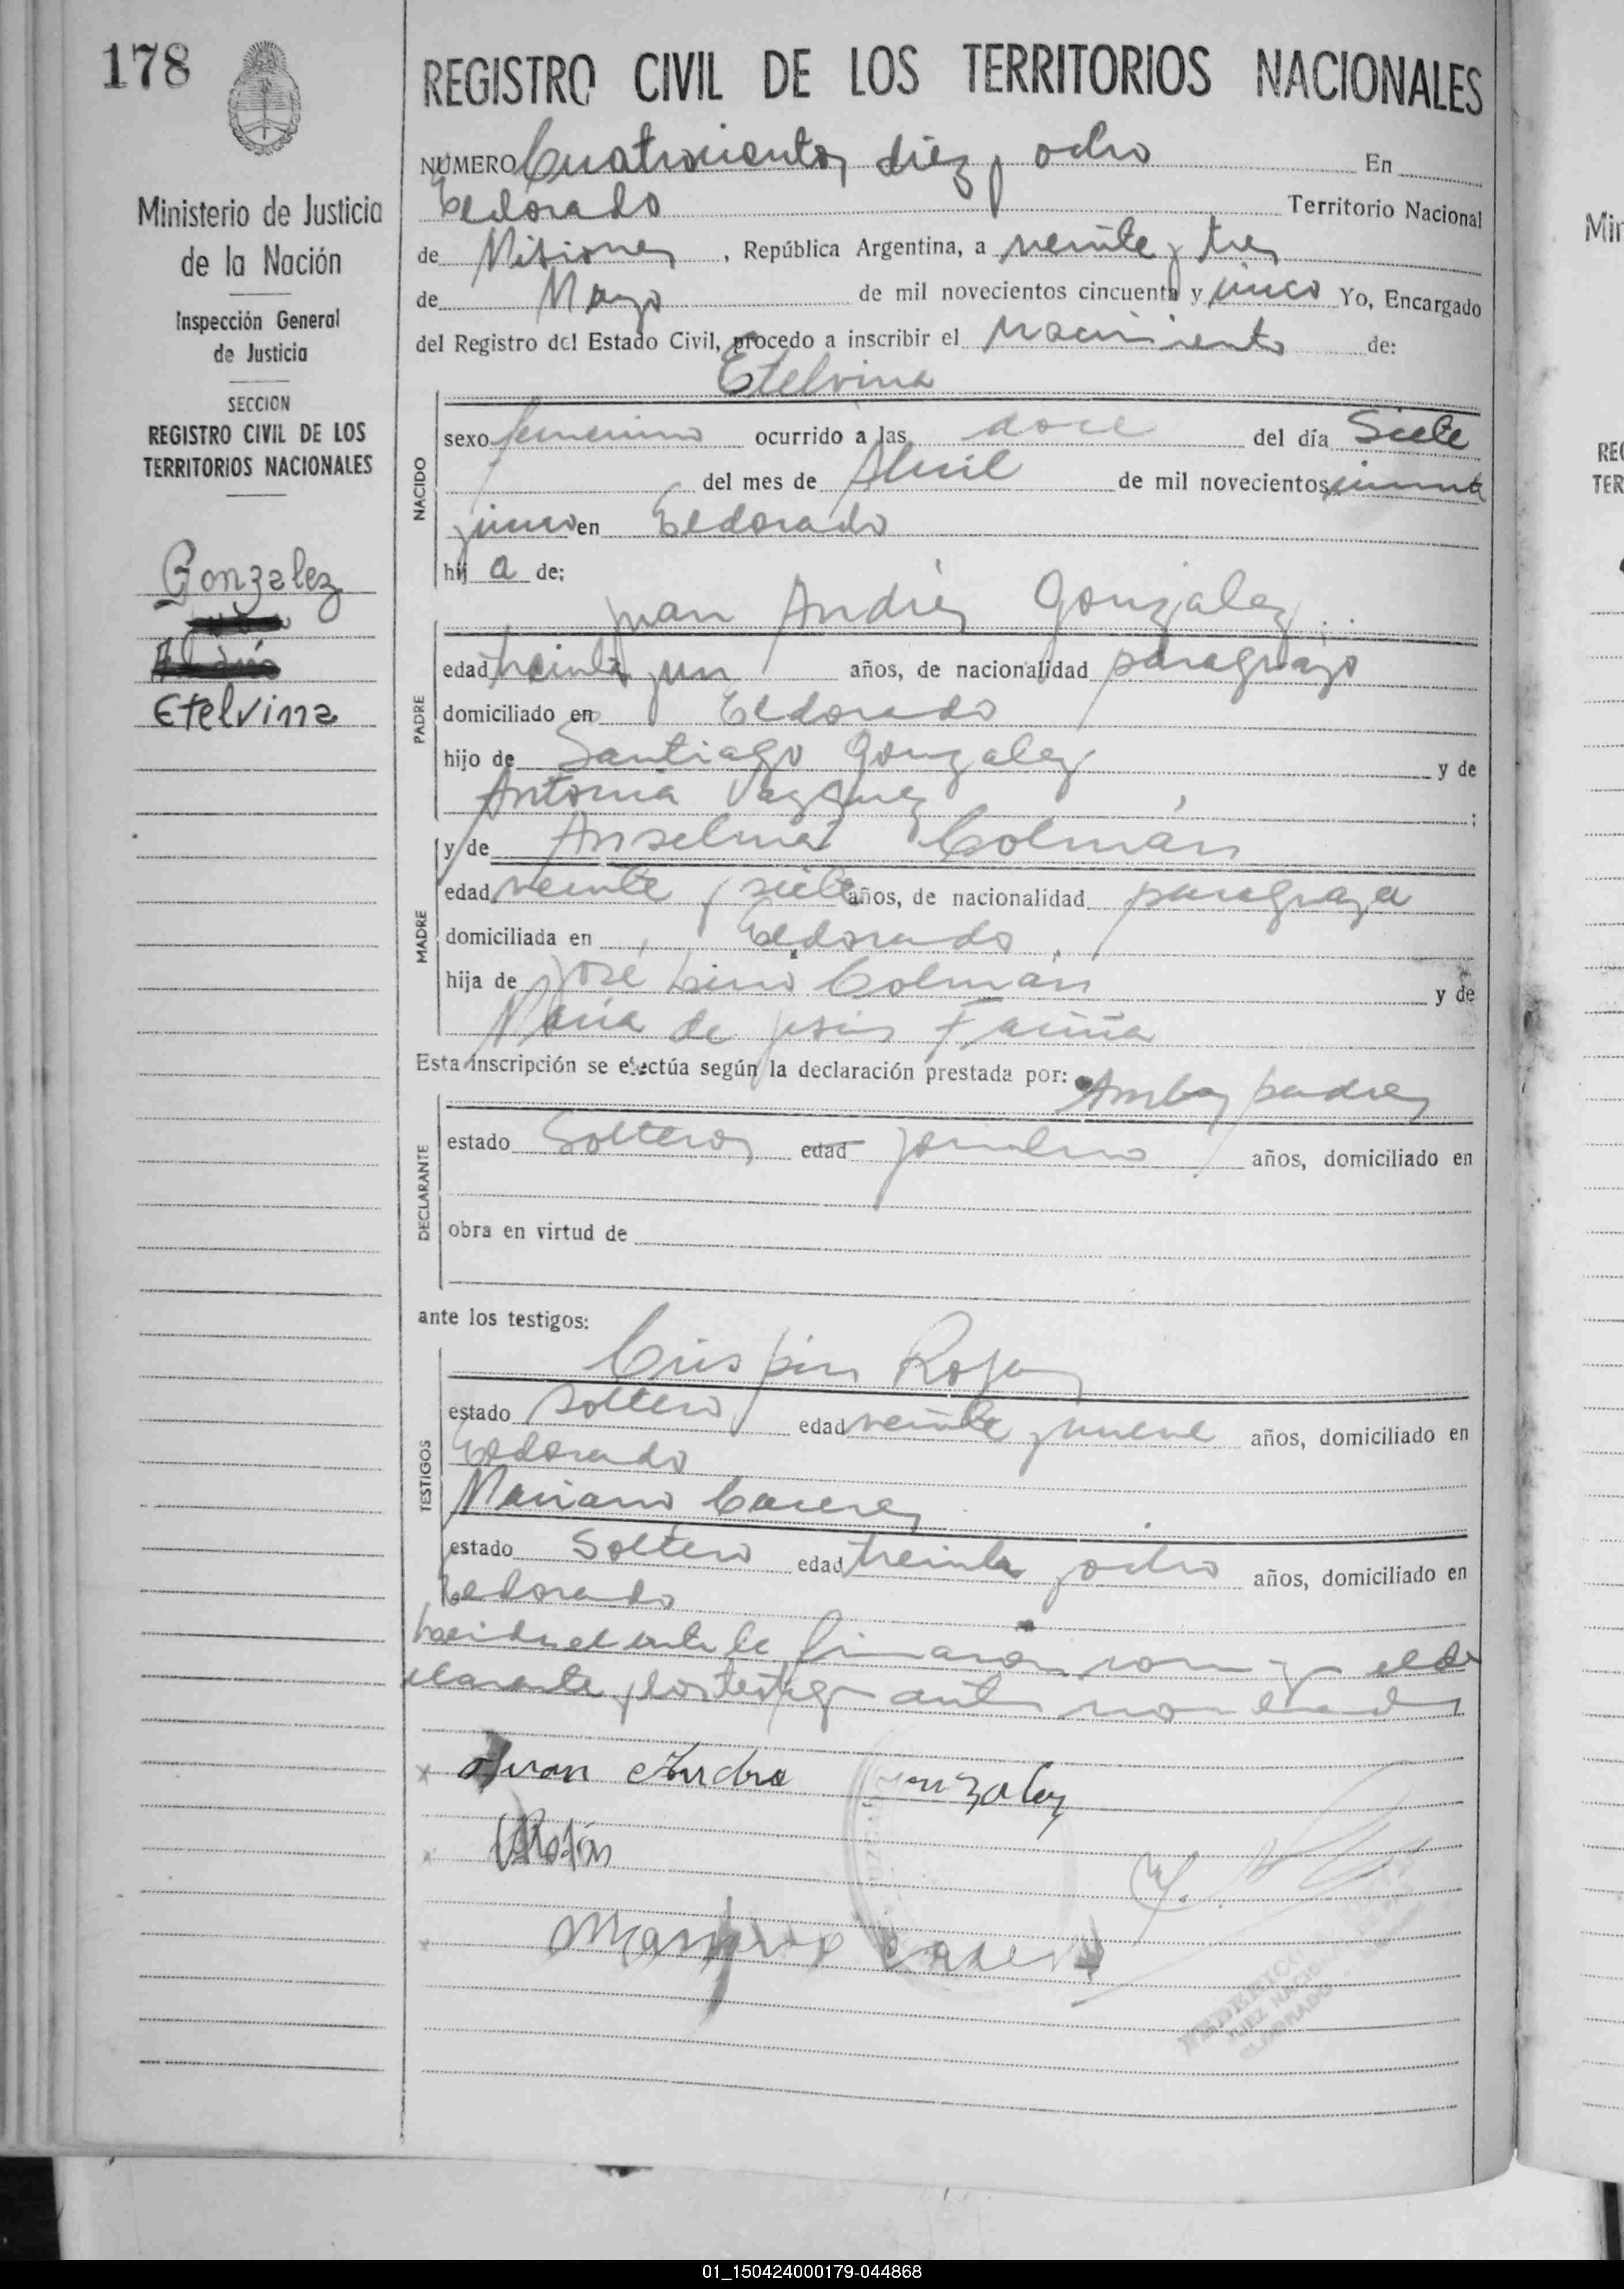 178
REGISTRO CIVIL DE LOS TERRITORIOS NACIONALES
NUMERO Cuatrocientos diez y ocho En
Eldorado Territorio Nacional
de Misiones, República Argentina, a veinte y tres
de Mayo de mil novecientos cincuenta y cinco Yo, Encargado
del Registro del Estado Civil, procedo a inscribir el nacimiento de:
Etelvina
Ministerio de Justicia
de la Nación
Inspección General
de Justicia
SECCION
REGISTRO CIVIL DE LOS
TERRITORIOS NACIONALES
Gonzalez
Etelvina
NACIDO
sexo femenino ocurrido a las doce del día Siete
del mes de Abril de mil novecientos cincuenta
y cinco en Eldorado
hij a de:
Juan Andrés Gonzalez
PADRE
edad treinta y un años, de nacionalidad paraguayo
domiciliado en Eldorado
hijo de Santiago Gonzalez y de
Antonia Vazquez ;
MADRE
y de Anselma Colmán
edad veinte y siete años, de nacionalidad paraguaya
domiciliada en Eldorado
hija de José Lino Colmán y de
Maria de Jesús Fariña
Esta inscripción se efectúa según la declaración prestada por: Ambos padres
DECLARANTE
estado Solteros edad jornalero años, domiciliado en
obra en virtud de
ante los testigos:
Crispin Rojas
TESTIGOS
estado soltero edad veinte y nueve años, domiciliado en
Eldorado
Mariano Caceres
estado Soltero edad treinta y ocho años, domiciliado en
Eldorado
Leida el acta la firmaron con el de
clarante y los testigos antes nombrados
x Juan Andre Gonzalez
x Rojas
x Mariano Caceres
JUEZ
ELDORADO
01_150424000179-044868